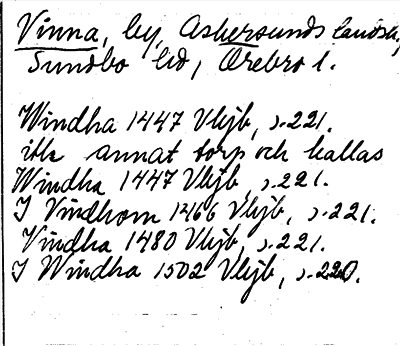 Vinna, by, Askersunds landsk,
Sundbo hd, Örebro l.
Windha 1447 Vkjb, s. 221.
itk annat torp och kallas
Windha 1447 Vkjb, s. 221.
I Vindhom 1466 Vkjb, s. 221.
Vindha 1480 Vkjb, s. 221.
I Windha 1502 Vkjb, s. 220.